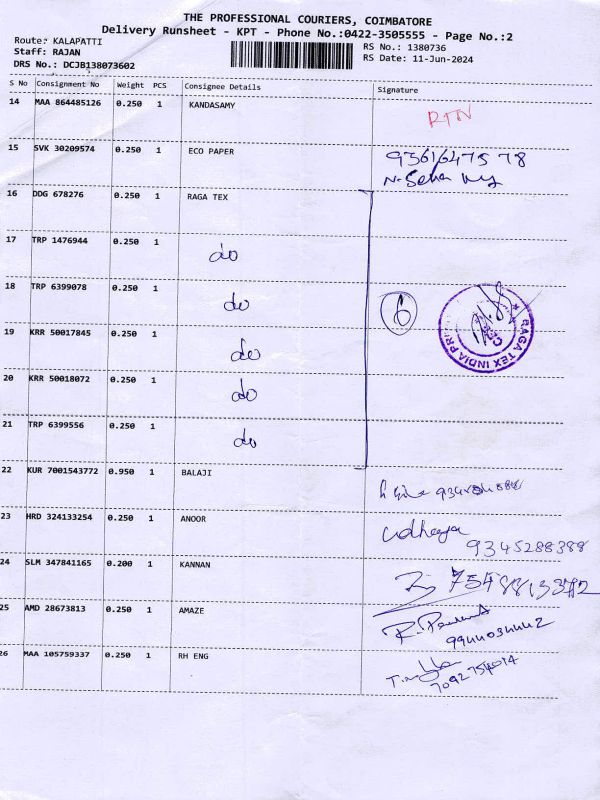 THE PROFESSIONAL COURIERS, COIMBATORE
Delivery Runsheet - KPT - Phone No.:0422-3505555 - Page No.:2
Route: KALAPATTI
RS No.: 1380736
Staff: RAJAN
RS Date: 11-Jun-2024
DRS No.: DCJB138073602
S No Consignment No Weight PCS Consignee Details Signature
14 MAA 864485126 0.250 1 KANDASAMY RTN
15 SVK 30209574 0.250 1 ECO PAPER 9361647578
16 DDG 678276 0.250 1 RAGA TEX
17 TRP 1476944 0.250 1 do
18 TRP 6399078 0.250 1 do 6
RAGA TEX INDIA PRI
19 KRR 50017845 0.250 1 do
20 KRR 50018072 0.250 1 do
21 TRP 6399556 0.250 1 do
22 KUR 7001543772 0.950 1 BALAJI
23 HRD 324133254 0.250 1 ANOOR udhaya
9345288388
24 SLM 347841165 0.200 1 KANNAN
25 AMD 28673813 0.250 1 AMAZE
9944034442
26 MAA 105759337 0.250 1 RH ENG